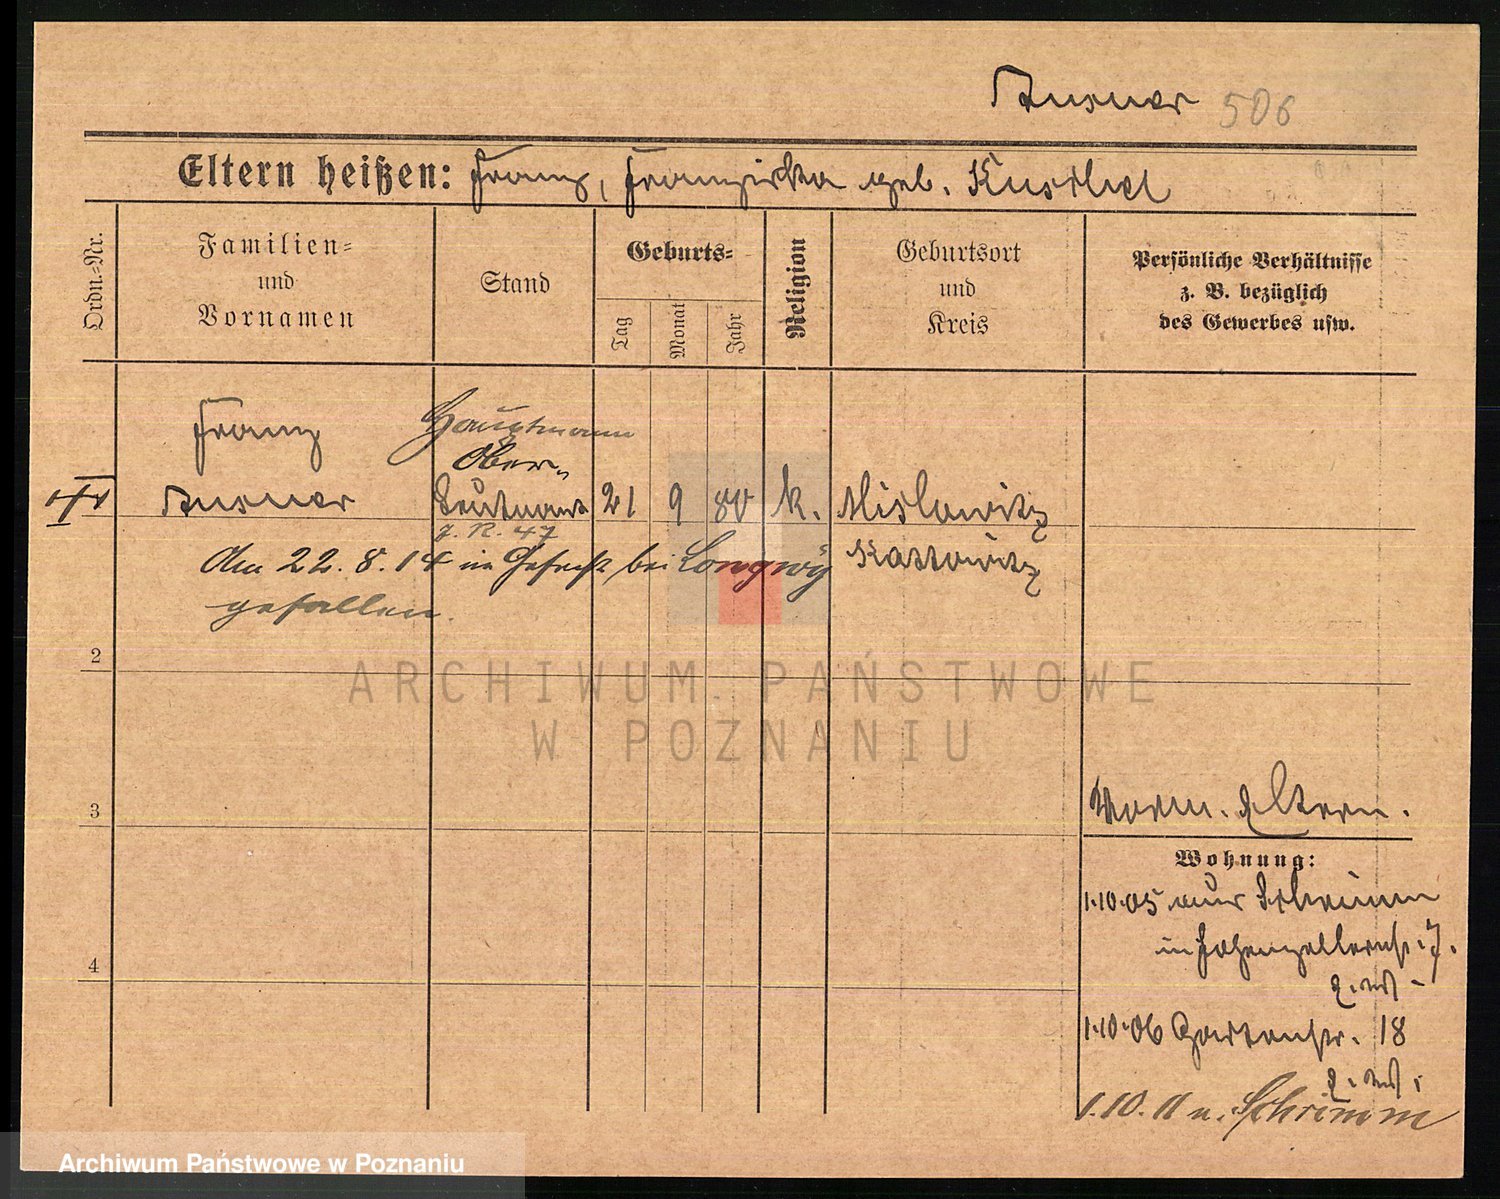 506
Eltern heißen: Franz, Franziska geb.
Ordn.-Nr.
Familien-
und
Vornamen
Stand
Geburts-
Tag
Monat
Jahr
Religion
Geburtsort
und
Kreis
Persönliche Verhältnisse
z. B. bezüglich
des Gewerbes usw.
Franz
Hauptmann
Ober-
Leutnant 21 9 80 k. Mislowitz
J. R. 47
Kattowitz
Am 22.8.14 im Gefecht bei Longwy
gefallen.
2
ARCHIWUM PAŃSTWOWE
W POZNANIU
3
Verm. Eltern.
Wohnung:
1.10.05 aus Schrimm
in Hohenzollernstr. 7.
4
1.10.06 Gartenstr. 18
1.10.11 n. Schrimm
Archiwum Państwowe w Poznaniu